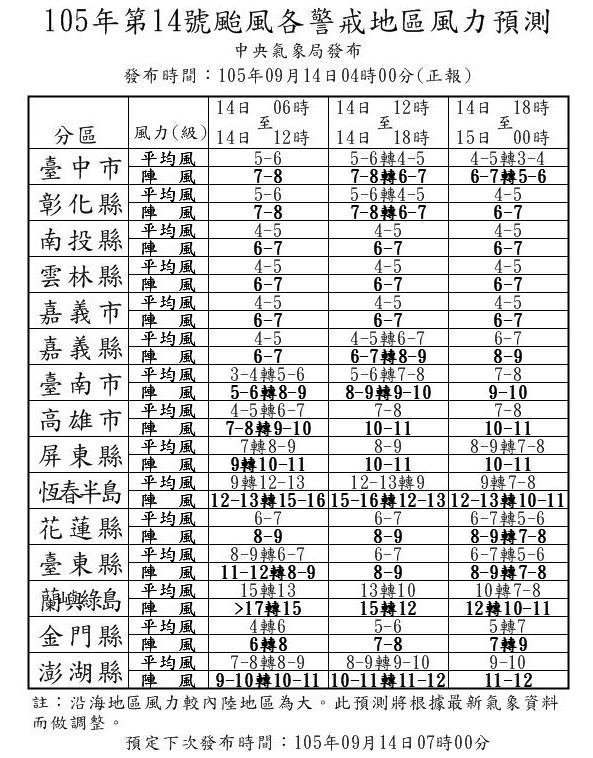 105年第14號颱風各警戒地區風力預測
中央氣象局發布
發布時間：105年09月14日04時00分(正報)
分區 風力(級) 14日 06時 至 14日 12時 14日 12時 至 14日 18時 14日 18時 至 15日 00時
臺中市 平均風 5-6 5-6轉4-5 4-5轉3-4
陣 風 7-8 7-8轉6-7 6-7轉5-6
彰化縣 平均風 5-6 5-6轉4-5 4-5
陣 風 7-8 7-8轉6-7 6-7
南投縣 平均風 4-5 4-5 4-5
陣 風 6-7 6-7 6-7
雲林縣 平均風 4-5 4-5 4-5
陣 風 6-7 6-7 6-7
嘉義市 平均風 4-5 4-5 4-5
陣 風 6-7 6-7 6-7
嘉義縣 平均風 4-5 4-5轉6-7 6-7
陣 風 6-7 6-7轉8-9 8-9
臺南市 平均風 3-4轉5-6 5-6轉7-8 7-8
陣 風 5-6轉8-9 8-9轉9-10 9-10
高雄市 平均風 4-5轉6-7 7-8 7-8
陣 風 7-8轉9-10 10-11 10-11
屏東縣 平均風 7轉8-9 8-9 8-9轉7-8
陣 風 9轉10-11 10-11 10-11
恆春半島 平均風 9轉12-13 12-13轉9 9轉7-8
陣 風 12-13轉15-16 15-16轉12-13 12-13轉10-11
花蓮縣 平均風 6-7 6-7 6-7轉5-6
陣 風 8-9 8-9 8-9轉7-8
臺東縣 平均風 8-9轉6-7 6-7 6-7轉5-6
陣 風 11-12轉8-9 8-9 8-9轉7-8
蘭嶼綠島 平均風 15轉13 13轉10 10轉7-8
陣 風 >17轉15 15轉12 12轉10-11
金門縣 平均風 4轉6 5-6 5轉7
陣 風 6轉8 7-8 7轉9
澎湖縣 平均風 7-8轉8-9 8-9轉9-10 9-10
陣 風 9-10轉10-11 10-11轉11-12 11-12
註：沿海地區風力較內陸地區為大。此預測將根據最新氣象資料
而做調整。
預定下次發布時間：105年09月14日07時00分